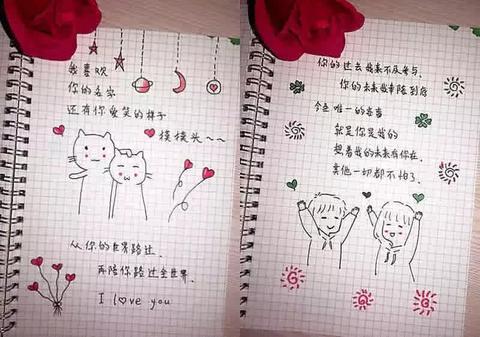 我喜欢
你的名字
还有你爱笑的样子
摸摸头~~
从你的世界路过
再陪你路过全世界.
I l♡ve you
你的过去我来不及参与,
你的未来我奉陪到底
唯一的
就是你是我的
想着我的未来有你在,
其他一切都不怕了.